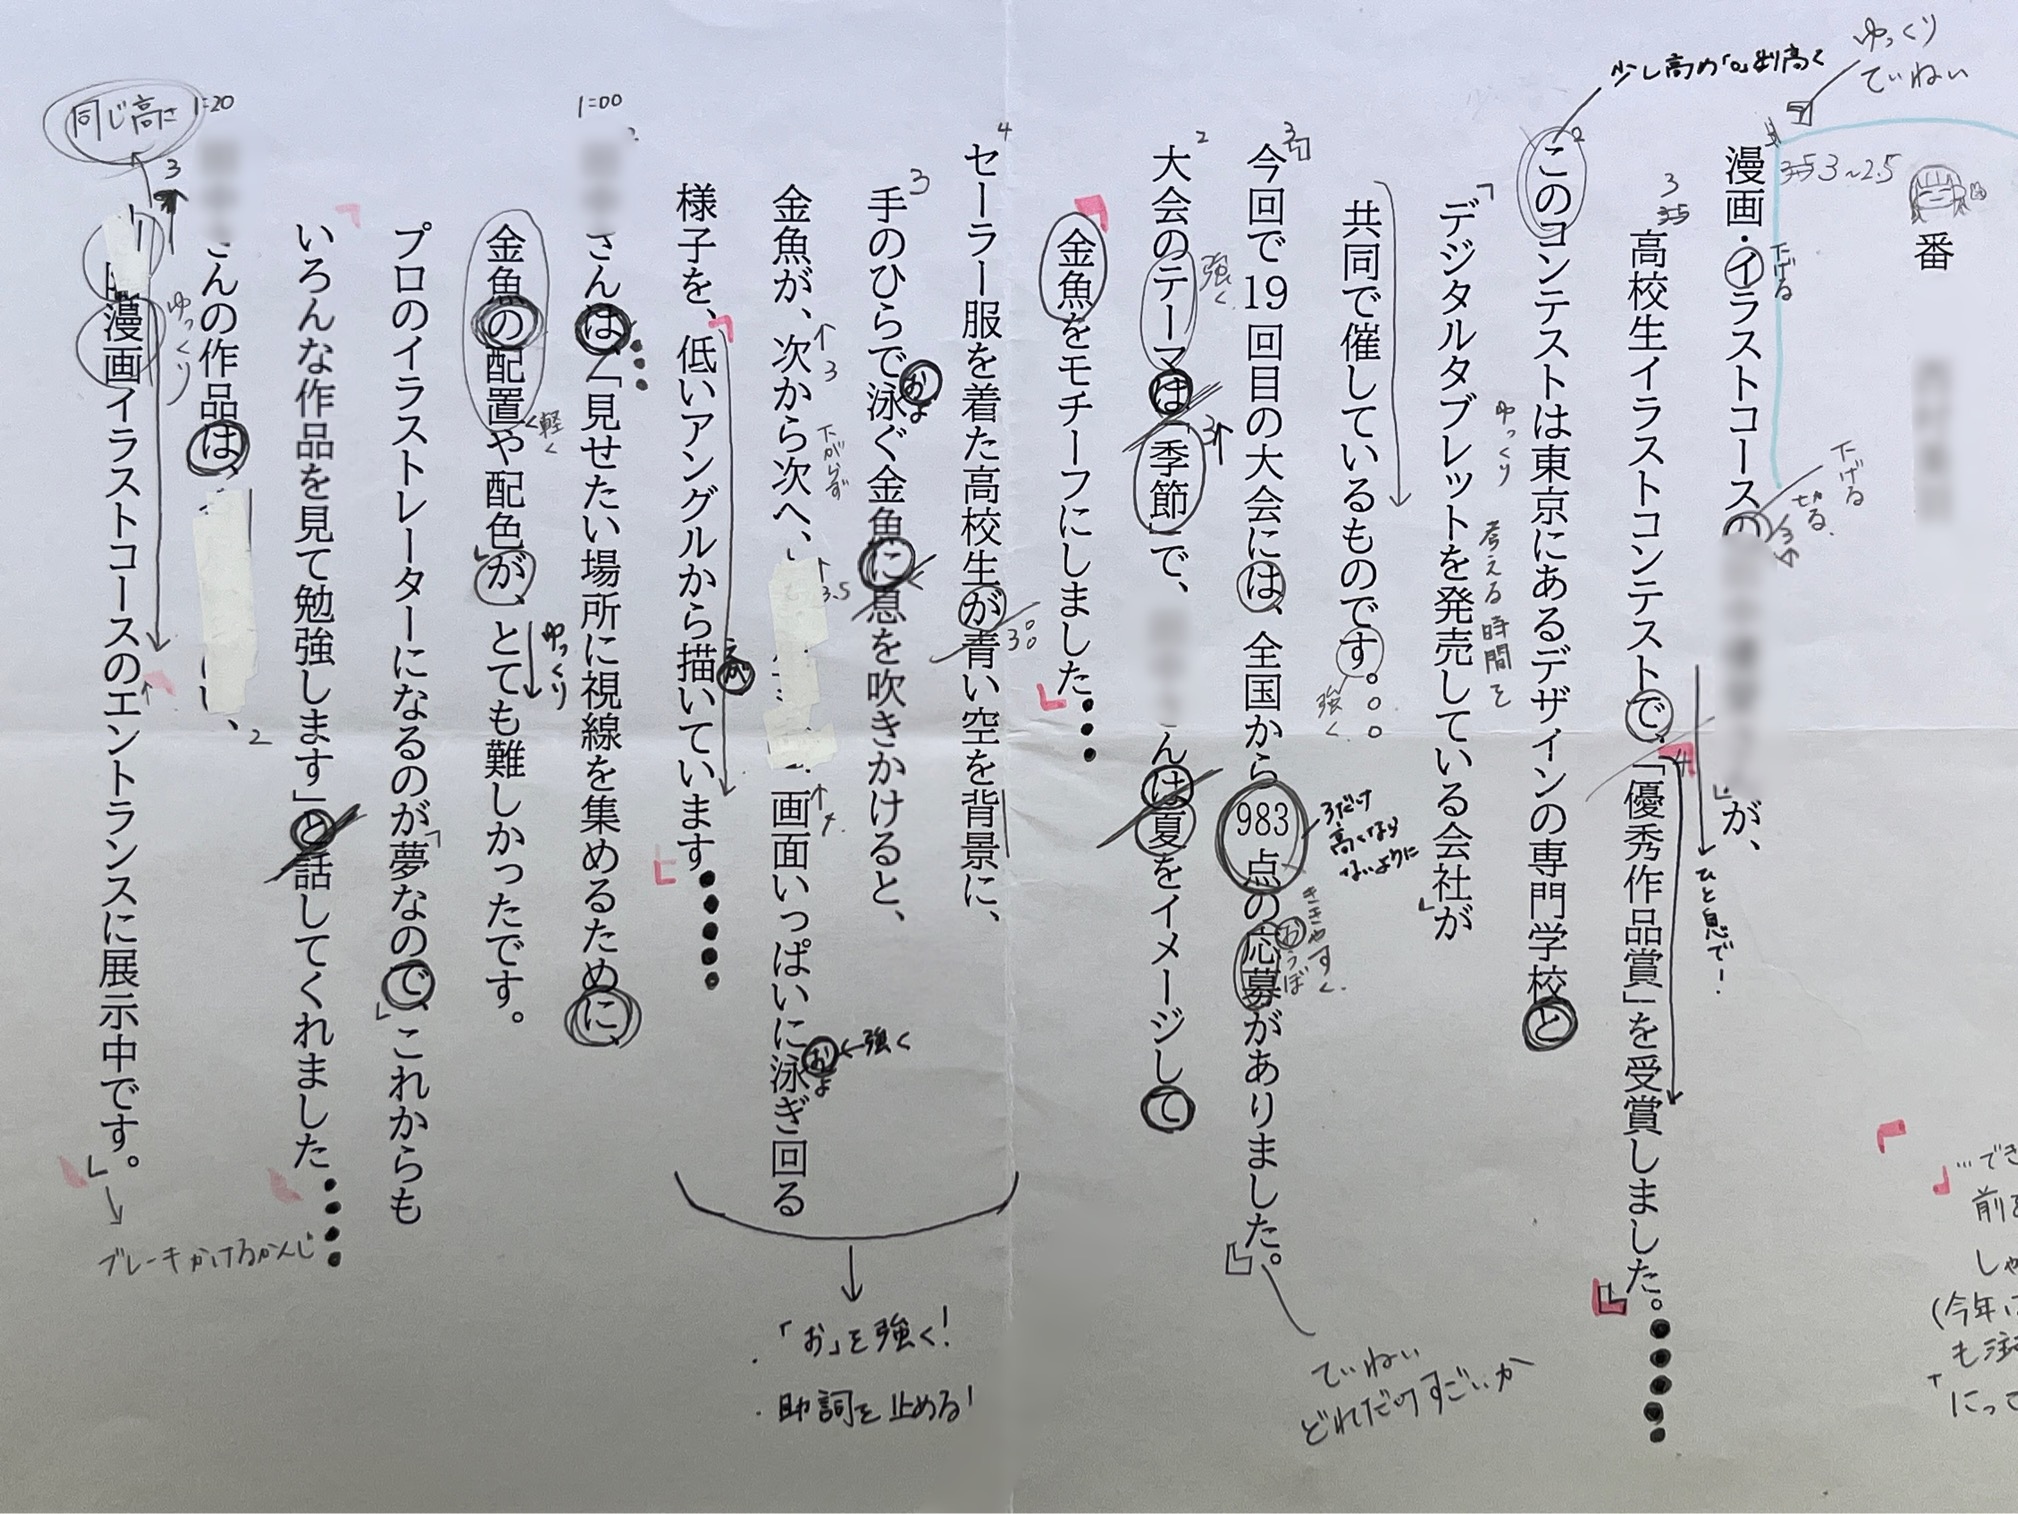 番
漫画・イラストコースの
」が、
高校生イラストコンテストで、「優秀作品賞」を受賞しました。
このコンテストは東京にあるデザインの専門学校と
デジタルタブレットを発売している会社が
共同で催しているものです。
今回で19回目の大会には、全国から983点の応募がありました。
大会のテーマは「季節」で、
んは夏をイメージして
金魚をモチーフにしました
セーラー服を着た高校生が青い空を背景に、
手のひらで泳ぐ金魚に息を吹きかけると、
金魚が、次から次へ、
画面いっぱいに泳ぎ回る
様子を、低いアングルから描いています
さんは、「見せたい場所に視線を集めるために、
金魚の配置や配色が、とても難しかったです。
プロのイラストレーターになるのが夢なので、これからも
いろんな作品を見て勉強します」と話してくれました
さんの作品は、
漫画イラストコースのエントランスに展示中です。
ゆっくり
ていねい
少し高め
3~2.5
下げる
下げる
切る
ひと息で!
ゆっくり
考える時間を
強く
強く
3だけ
高くなら
ないように
ききやすく
おうぼ
ていねい
どれだけすごいか
下がらず
3.5
←強く
およ
およ
えが
「お」を強く!
・助詞を止める!
1:00
軽く
ゆっくり
1:20
同じ高さ
ゆっくり
ブレーキかけるかんじ
…でき
前を
(今年に
にって